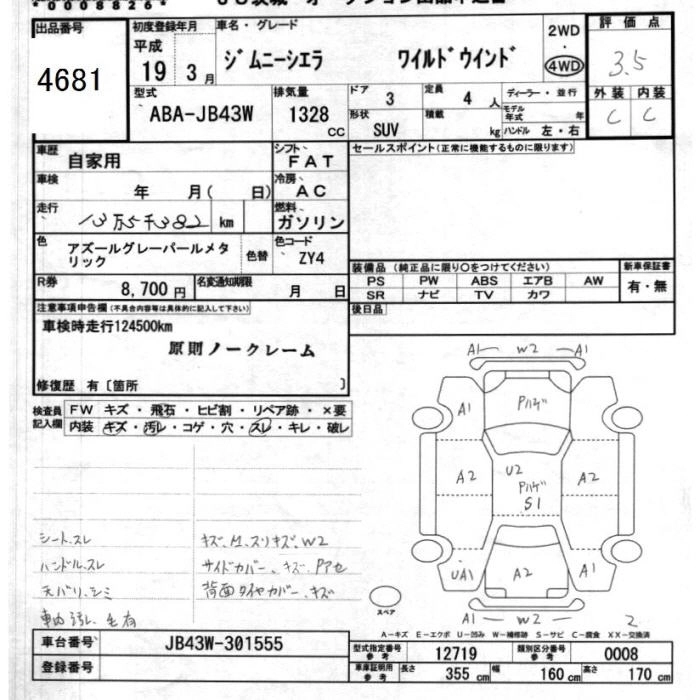 *0008826*
出品番号
4681
初度登録年月 車名・グレード
平成
19 3月
ジムニーシエラ ワイルドウインド
2WD
・
4WD
評価点
3.5
外装 内装
C C
型式
ABA-JB43W
排気量
1328
CC
ドア 3
定員 4 人
ディーラー・並行
形状
SUV
積載 kg
モデル年式 年
ハンドル 左・右
車歴
自家用
シフト
FAT
セールスポイント(正常に機能するものに限ります)
車検
年 月( 日)
冷房
AC
走行
13万5千382 km
燃料
ガソリン
色
アズールグレーパールメタ
リック
色替
色コード
ZY4
装備品(純正品に限り○をつけてください)
PS PW ABS エアB AW
SR ナビ TV カワ
新車保証書
有・無
R券
8,700円
名変通知期限
月 日
後日品
注意事項申告欄(不具合内容等は具体的に記入して下さい)
車検時走行124500km
原則ノークレーム
修復歴 有〔箇所 〕
検査員
記入欄
FW キズ・飛石・ヒビ割・リペア跡・×要
内装 キズ・汚レ・コゲ・穴・スレ・キレ・破レ
シート、スレ
ハンドル、スレ
天バリ、シミ
車内汚レ、毛有
キズ、M、スリキズ、W2
サイドカバー、キズ、Pアセ
背面タイヤカバー、キズ
A1 W2 A1
A1
Pハゲ
A2
U2
Pハゲ
S1
A2
UA1
A2
A1
スペア
A1 W2 A1
2
A-キズ E-エクボ U-凹み W-補修跡 S-サビ C-腐食 XX-交換済
車台番号
JB43W-301555
登録番号
型式指定番号
参考
12719
類別区分番号
参考
0008
車庫証明用
参考
長さ 355 cm
幅 160 cm
高さ 170 cm